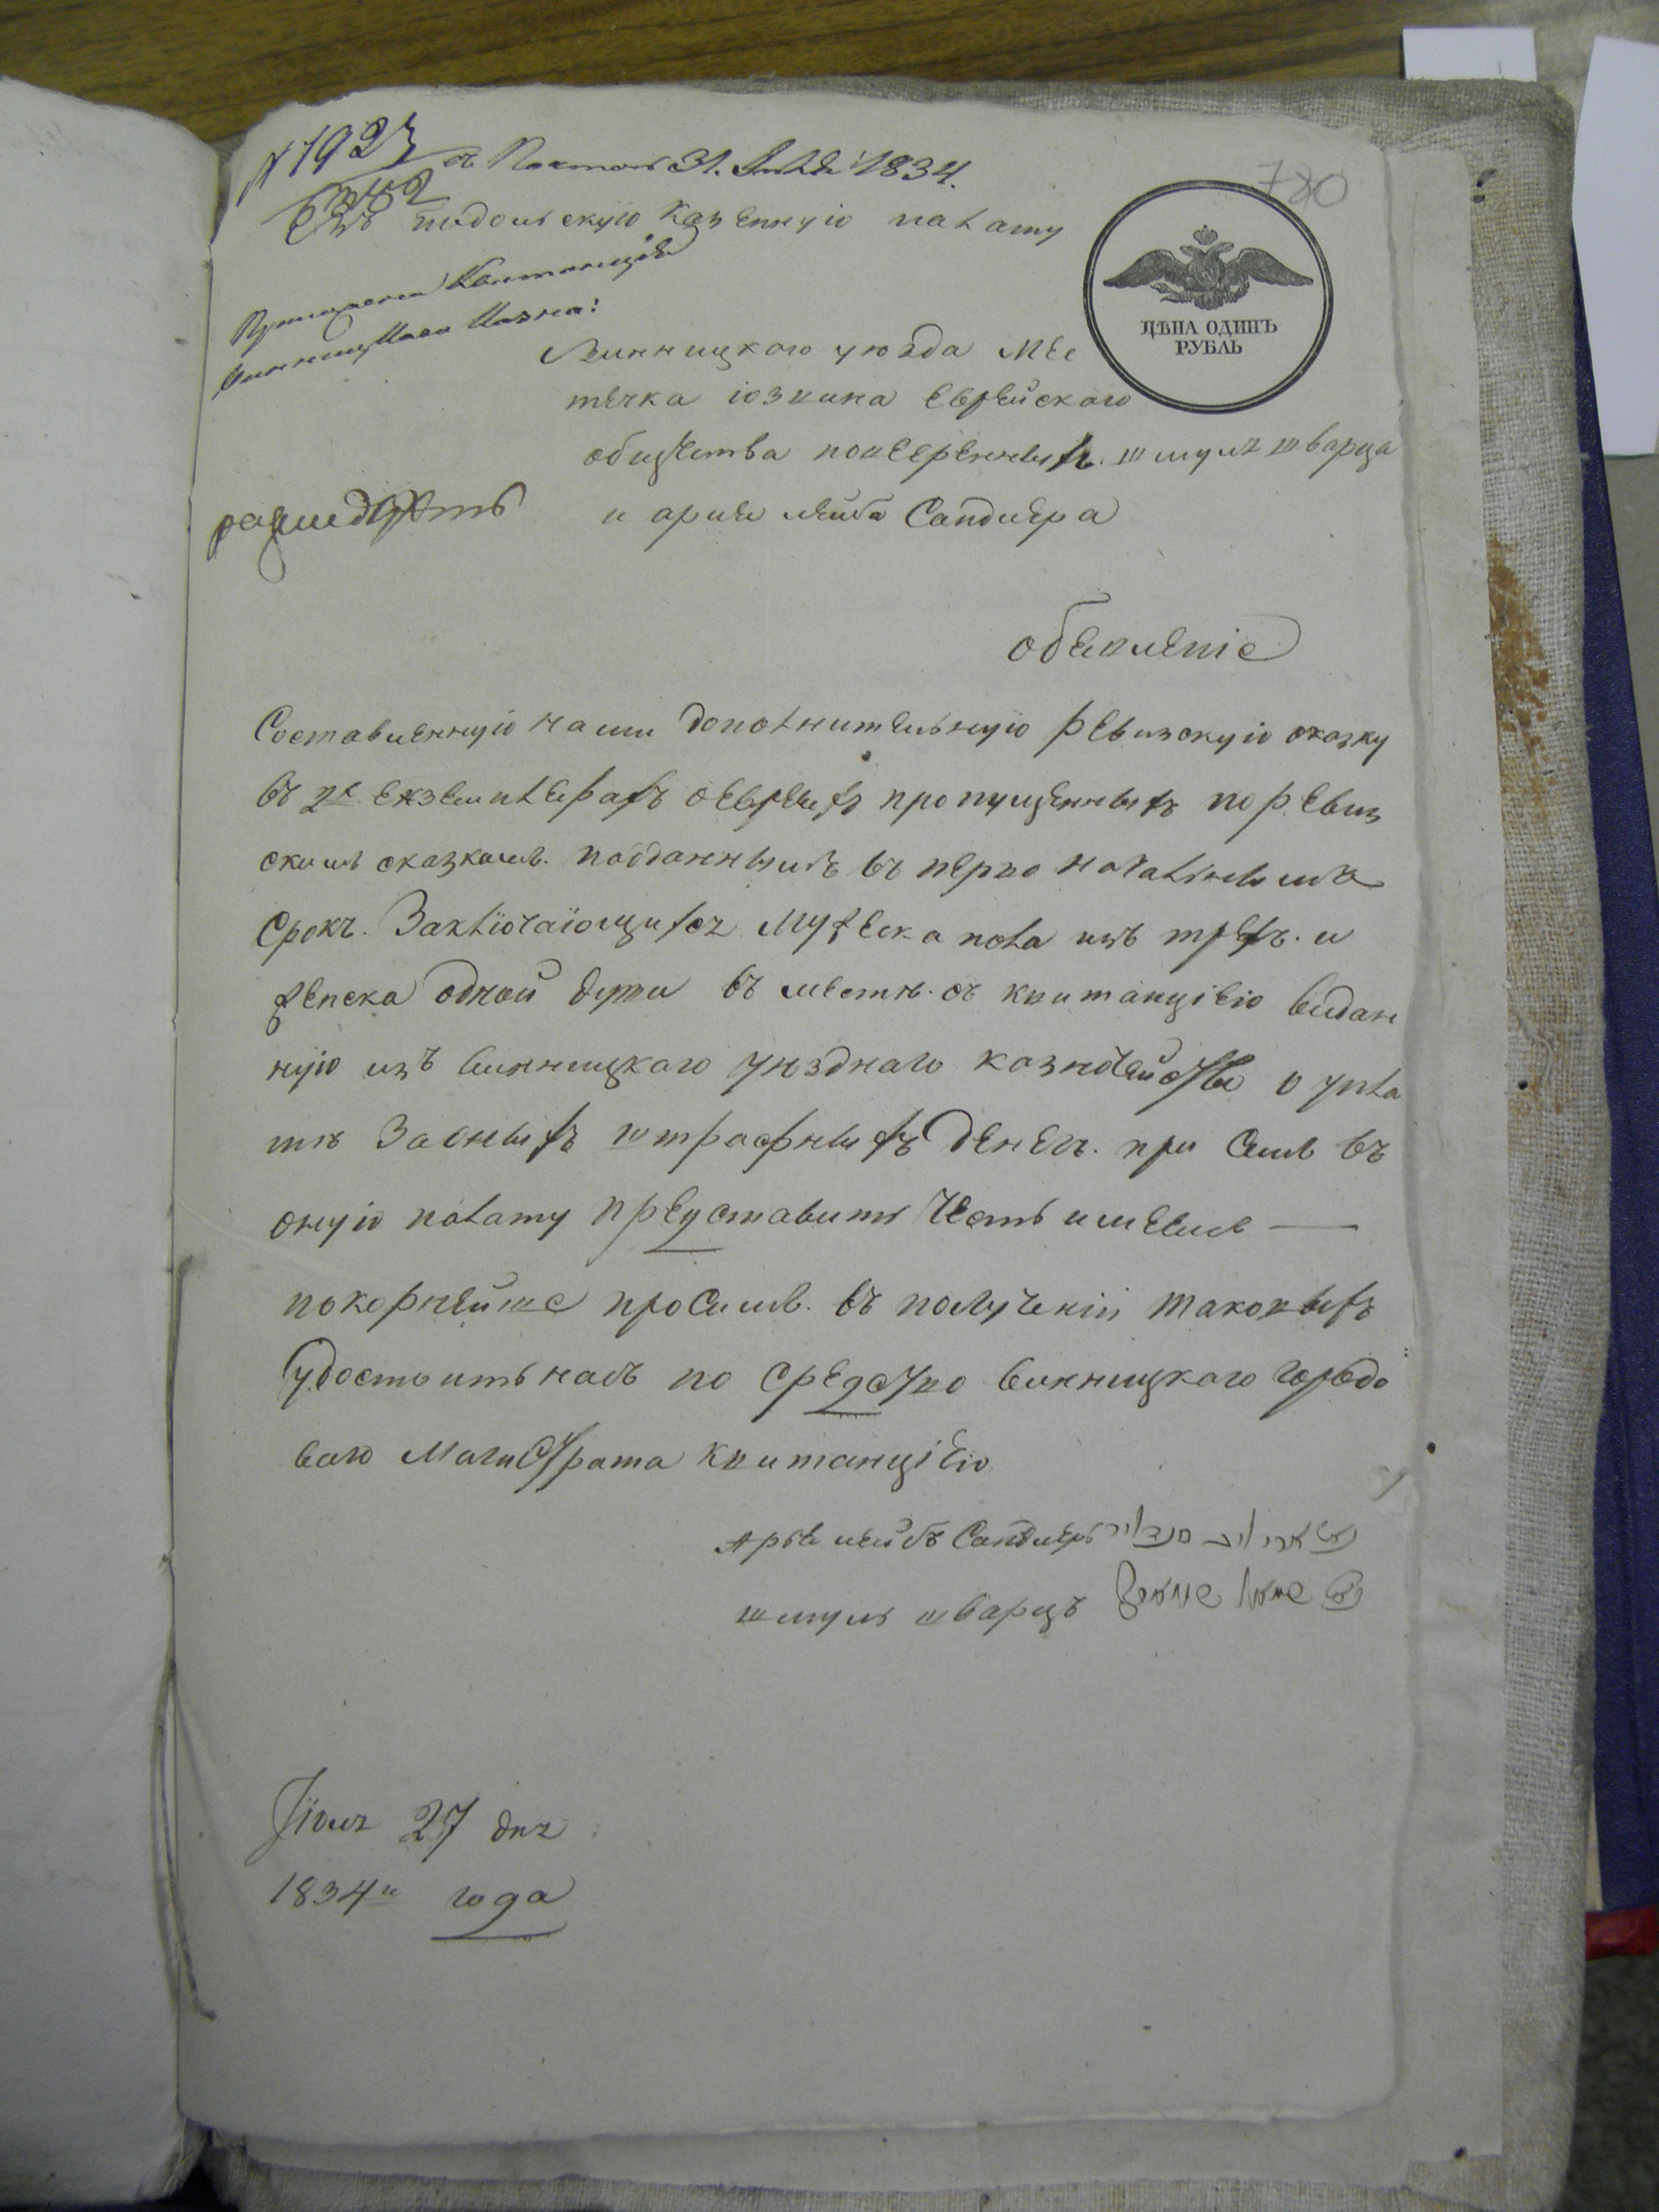 № 1927
съ Почтою 31. Июля 1834.
780
Въ подольскую Казенную палату
ЦѢНА ОДИНЪ
РУБЛЬ
Винницкого уюзда Мес
течка юзвина Еврейского
общества повѣренныхъ. шмуля шварца
и арие лейба Сандлера
обевленіе
Составленную нами дополнительную ревизскую сказку
въ 2х екземплерахъ оевреехъ пропущенныхъ по ревиз
скимъ сказкамъ. подданнымъ въ перво началнымъ
срокъ. Заключаїощихсе мужеска пола изъ трехъ. и
женска одной души въ местъ. съ квитанціею видан
ную изъ винницкого уюздного казначейства о упла
те За оныхъ штрафныхъ денегъ. при семъ въ
оную палату представить честь имеемъ —
покорнейше просимъ. въ полученіи таковыхъ
удостоить насъ по средство винницкого городо
ваго Магистрата квитанціею
Арье лейбъ Сандлеръ
шмуль шварцъ
Іюля 27 дня
1834го года